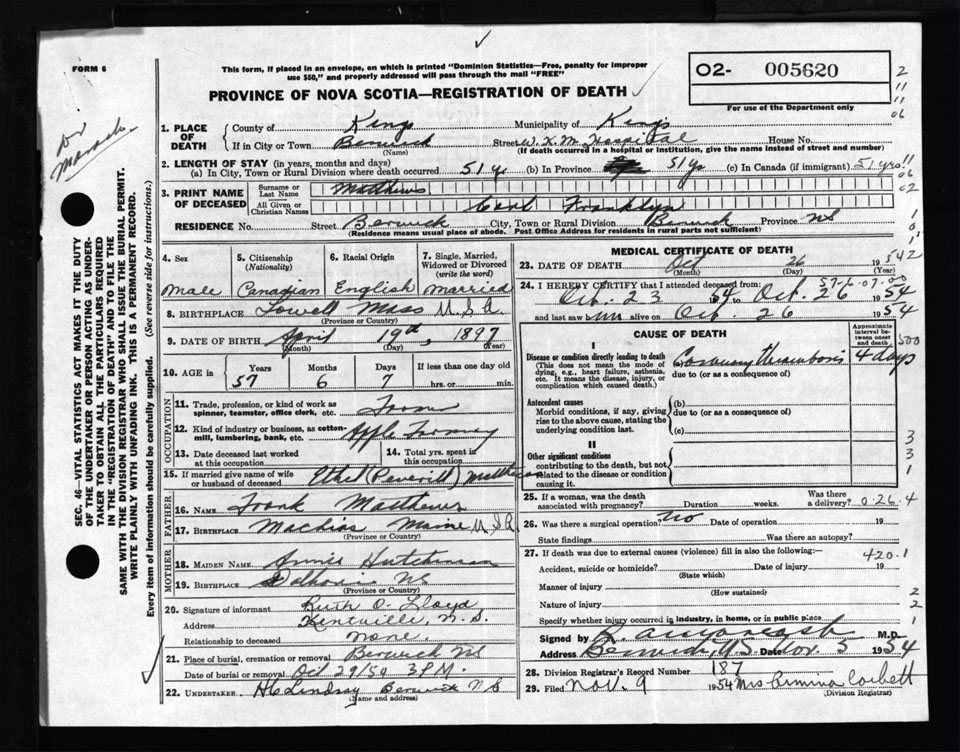 FORM 6
This form, if placed in an envelope, on which is printed "Dominion Statistics—Free, penalty for improper
use $50," and properly addressed will pass through the mail "FREE"
PROVINCE OF NOVA SCOTIA—REGISTRATION OF DEATH
O2- 005620
For use of the Department only
SEC. 46—VITAL STATISTICS ACT MAKES IT THE DUTY
OF THE UNDERTAKER OR PERSON ACTING AS UNDER-
TAKER TO OBTAIN ALL THE PARTICULARS REQUIRED
IN THE "REGISTRATION OF DEATH" AND TO FILE THE
SAME WITH THE DIVISION REGISTRAR WHO SHALL ISSUE THE BURIAL PERMIT.
WRITE PLAINLY WITH UNFADING INK. THIS IS A PERMANENT RECORD.
Every item of information should be carefully supplied. (See reverse side for instructions.)
1. PLACE OF DEATH County of Kings Municipality of Kings
If in City or Town Berwick Street W. K. M. Hospital House No.
(Name) (If death occurred in a hospital or institution, give the name instead of street and number)
2. LENGTH OF STAY (in years, months and days)
(a) In City, Town or Rural Division where death occurred 51 yr (b) In Province 51 yr (c) In Canada (if immigrant) 51 yrs
3. PRINT NAME OF DECEASED Surname or Last Name Matthews
All Given or Christian Names Carl Franklyn
RESIDENCE No. Street Berwick City, Town or Rural Division Berwick Province NS
(Residence means usual place of abode. Post Office Address for residents in rural parts not sufficient)
4. Sex 5. Citizenship (Nationality) 6. Racial Origin 7. Single, Married, Widowed or Divorced (write the word)
Male Canadian English Married
8. BIRTHPLACE Lowell Mass U.S.A
(Province or Country)
9. DATE OF BIRTH April 19th, 1897
(Month) (Day) (Year)
10. AGE in Years Months Days If less than one day
57 6 7 hrs. or min.
OCCUPATION
11. Trade, profession, or kind of work as spinner, teamster, office clerk, etc.
12. Kind of industry or business, as cotton-mill, lumbering, bank, etc. Apple
13. Date deceased last worked at this occupation 14. Total yrs. spent in this occupation
15. If married give name of wife or husband of deceased Ethel (Peverill) Matthews
FATHER
16. NAME Frank Matthews
17. BIRTHPLACE Machias Maine U.S.A
(Province or Country)
MOTHER
18. MAIDEN NAME Annie Hutchinson
19. BIRTHPLACE Dalhousie NS
(Province or Country)
20. Signature of informant Ruth O. Lloyd
Address Kentville, N.S.
Relationship to deceased None.
21. Place of burial, cremation or removal Berwick NS
Date of burial or removal Oct 29/54 3 P.M.
22. UNDERTAKER H C Lindsay Berwick NS
(Name and address)
MEDICAL CERTIFICATE OF DEATH
23. DATE OF DEATH Oct 26 1954
(Month) (Day) (Year)
24. I HEREBY CERTIFY that I attended deceased from:
Oct. 23 54 to Oct. 26 1954
and last saw him alive on Oct. 26 1954
CAUSE OF DEATH
Approximate interval between onset and death
I
Disease or condition directly leading to death
(This does not mean the mode of dying, e.g., heart failure, asthenia, etc. It means the disease, injury, or complication which caused death.)
(a) Coronary thrombosis 4 days
due to (or as a consequence of)
Antecedent causes
Morbid conditions, if any, giving rise to the above cause, stating the underlying condition last.
(b)
due to (or as a consequence of)
(c)
II
Other significant conditions
contributing to the death, but not related to the disease or condition causing it.
25. If a woman, was the death associated with pregnancy? Duration weeks. Was there a delivery?
26. Was there a surgical operation? No Date of operation 19
State findings Was there an autopsy?
27. If death was due to external causes (violence) fill in also the following:—
420.1
Accident, suicide or homicide? Date of injury 19
(State which)
Manner of injury
(How sustained)
Nature of injury
Specify whether injury occurred in industry, in home, or in public place
Signed by M.D.
Address Berwick, NS Date Nov. 5 1954
28. Division Registrar's Record Number 187
29. Filed Nov. 9 1954 Mrs Ermina Corbett
(Division Registrar)